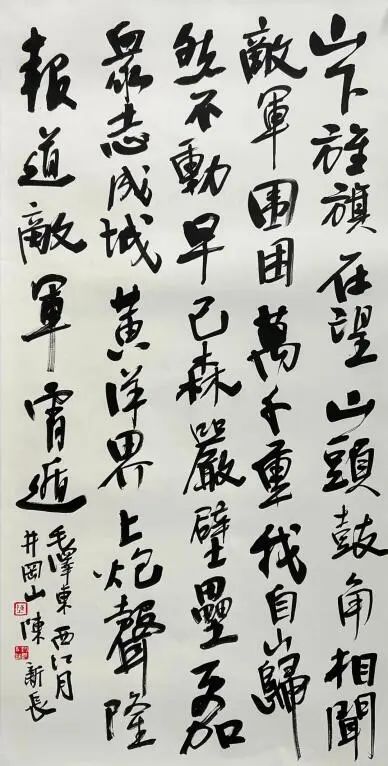 山下旌旗在望山頭鼓角相聞
敵軍围困萬千重我自巋
然不動早已森嚴壁壘更加
衆志成城黄洋界上炮聲隆
報道敵軍宵遁
毛澤東西江月
井岡山陳新長